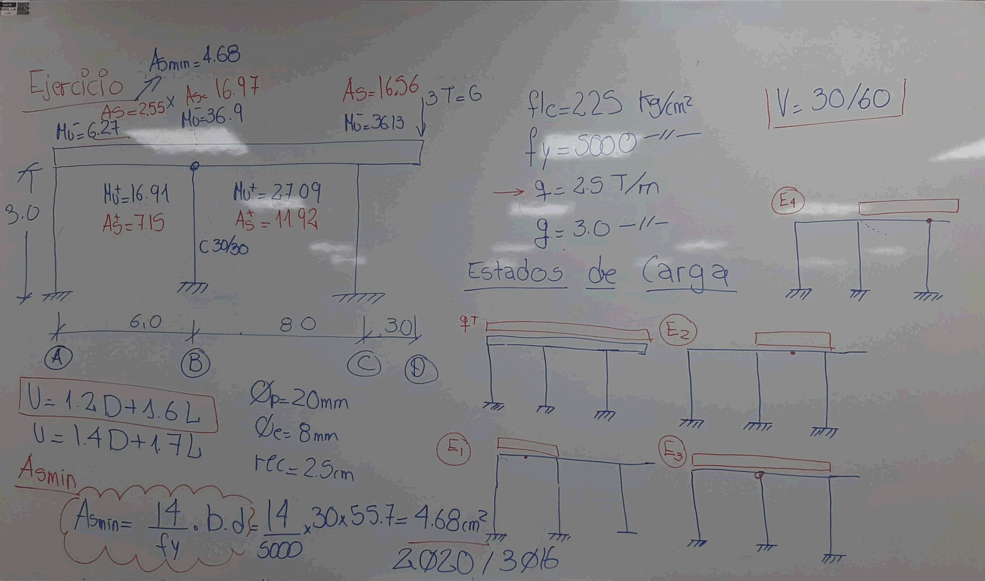 Ejercicio
Asmin = 4.68
As = 2.55 x
As = 16.97
Mu⁻ = 6.27
Mu⁻ = 36.9
As = 16.56
Mu⁻ = 36.13
3T = G
Mu⁺ = 16.91
As⁺ = 7.15
Mu⁺ = 27.09
As⁺ = 11.92
C 30/30
3.0
6.0
8.0
3.0
A
B
C
D
f'c = 225 kg/cm²
fy = 5000 -//-
→ q = 2.5 T/m
g = 3.0 -//-
V = 30/60
Estados de Carga
qT
E1
E2
E3
E4
U = 1.2D + 1.6L
U = 1.4D + 1.7L
Øp = 20mm
Øe = 8mm
rec = 2.5cm
Asmin
Asmin = 14/fy . b . d = 14/5000 x 30 x 55.7 = 4.68cm²
2Ø20/3Ø16